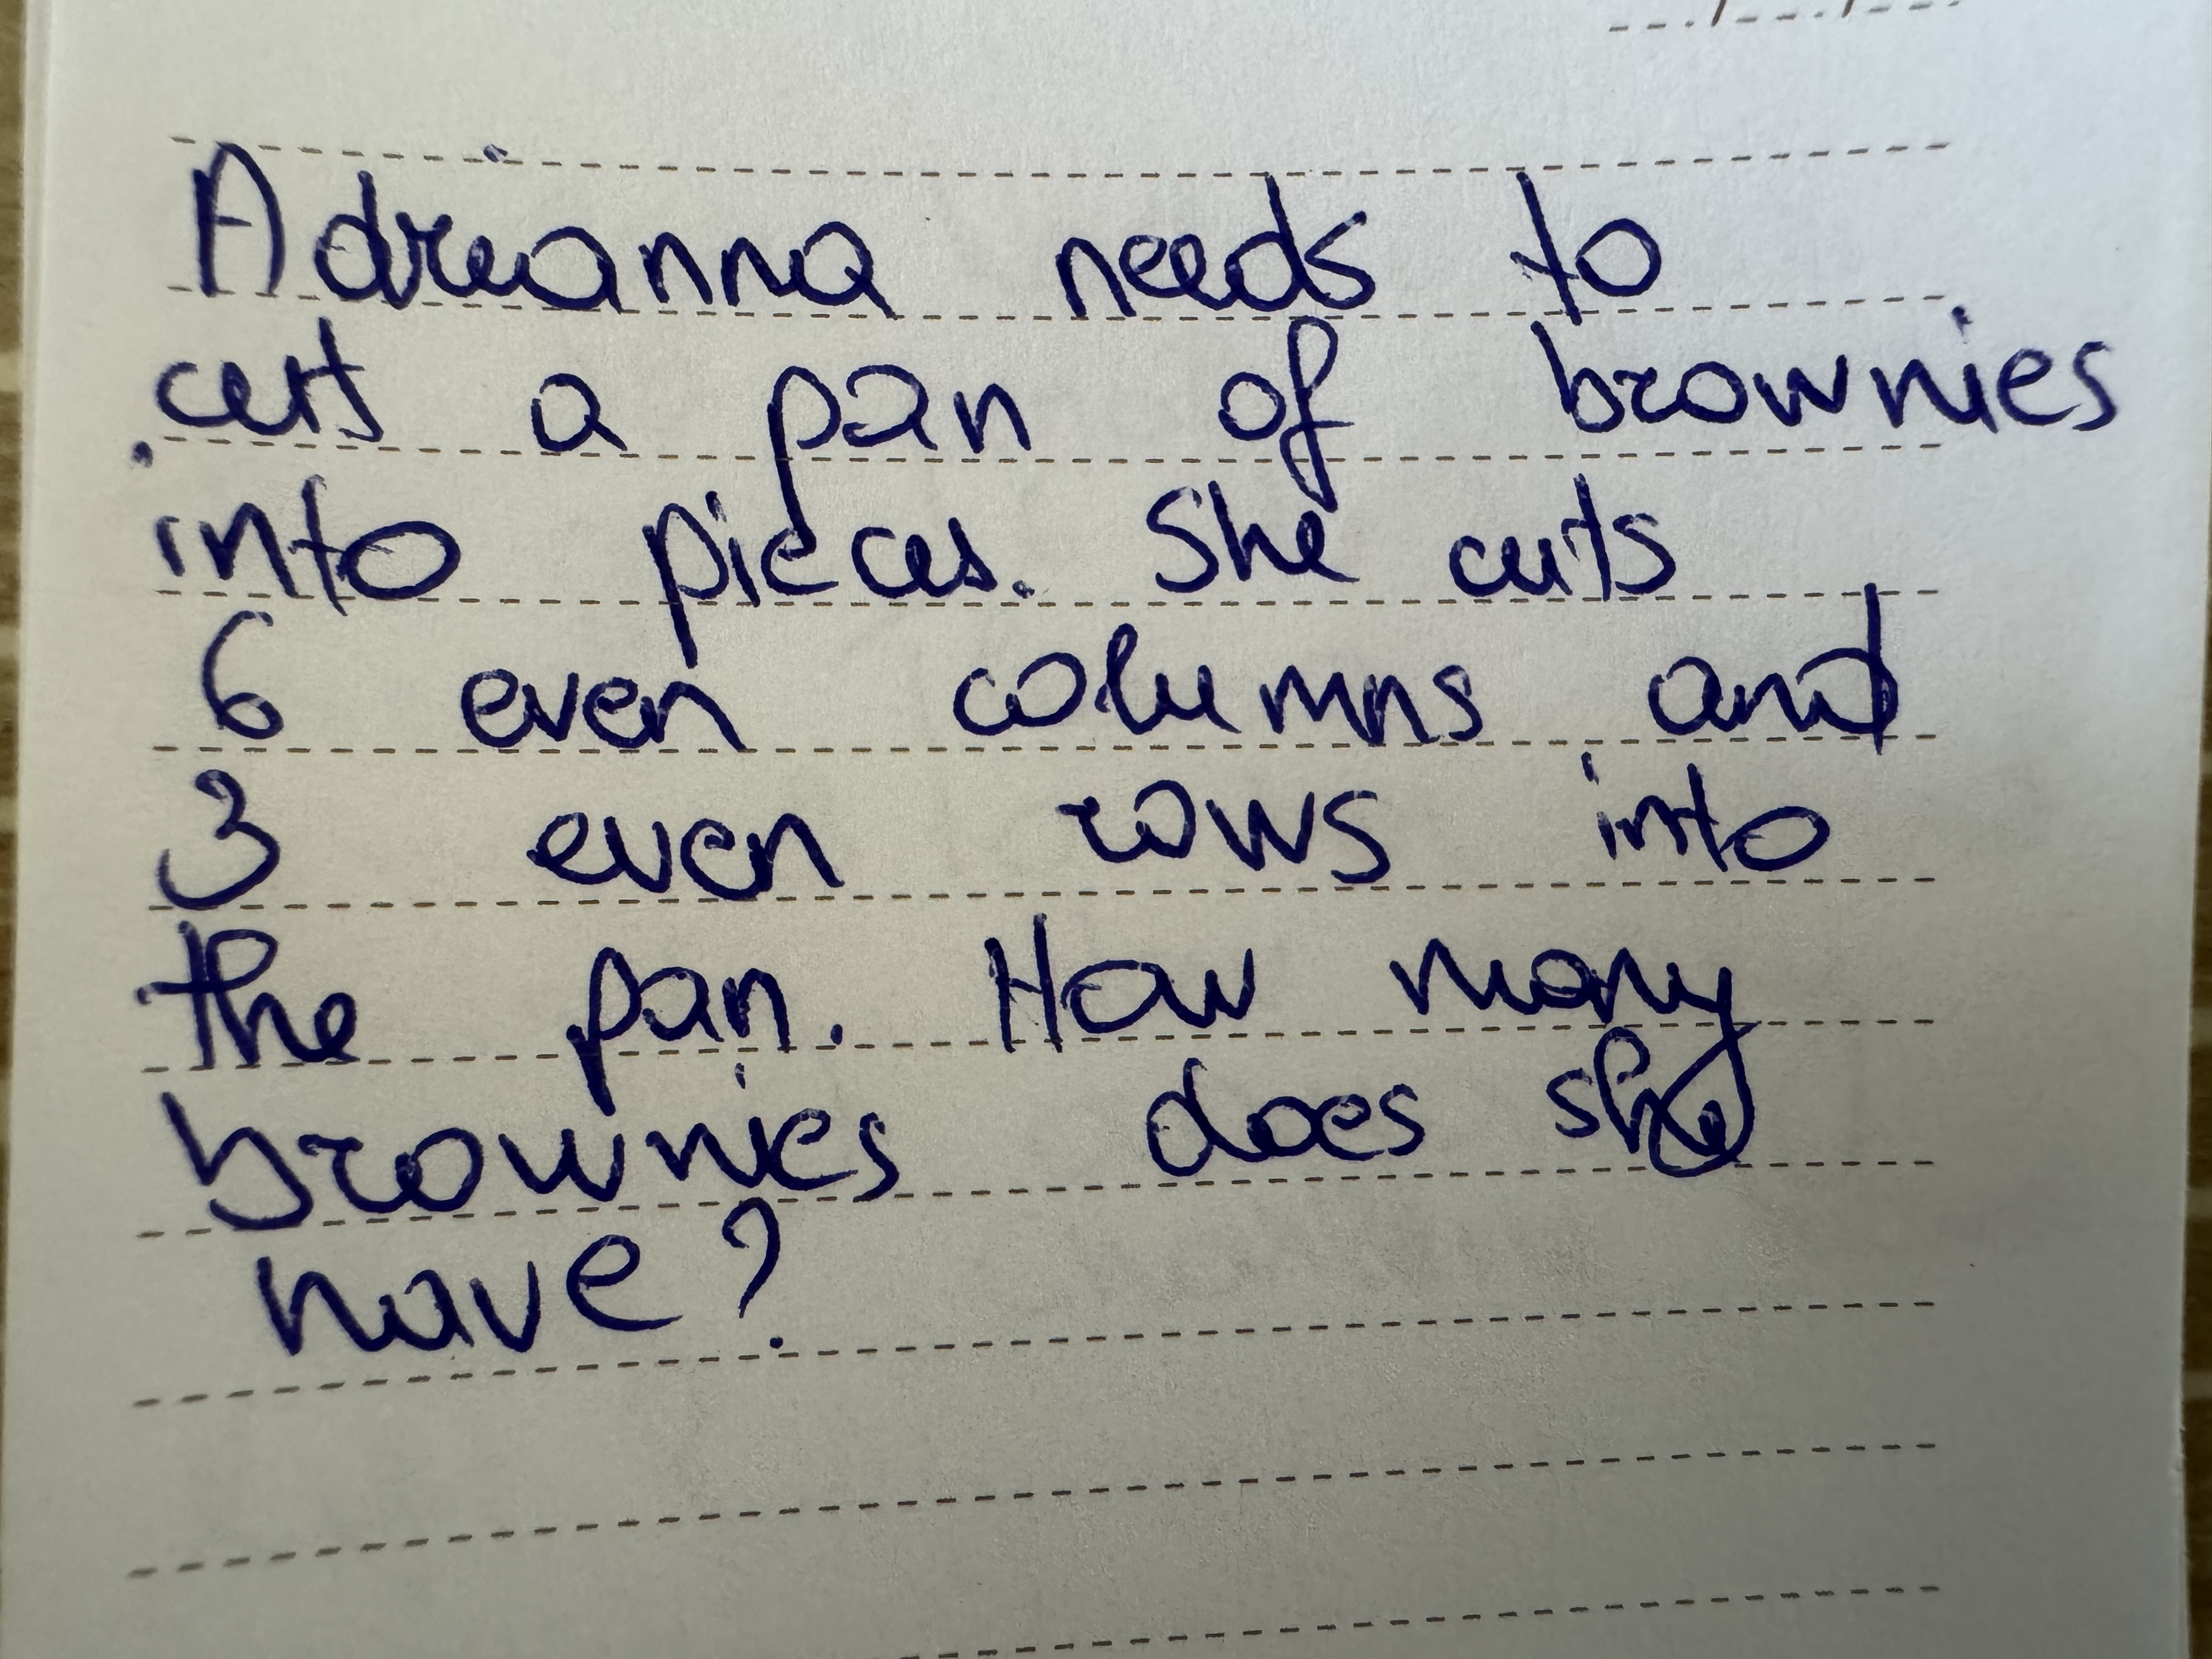 Adrianna needs to
cut a pan of brownies
into pieces. She cuts
6 even columns and
3 even rows into
the pan. How many
brownies does she
have?